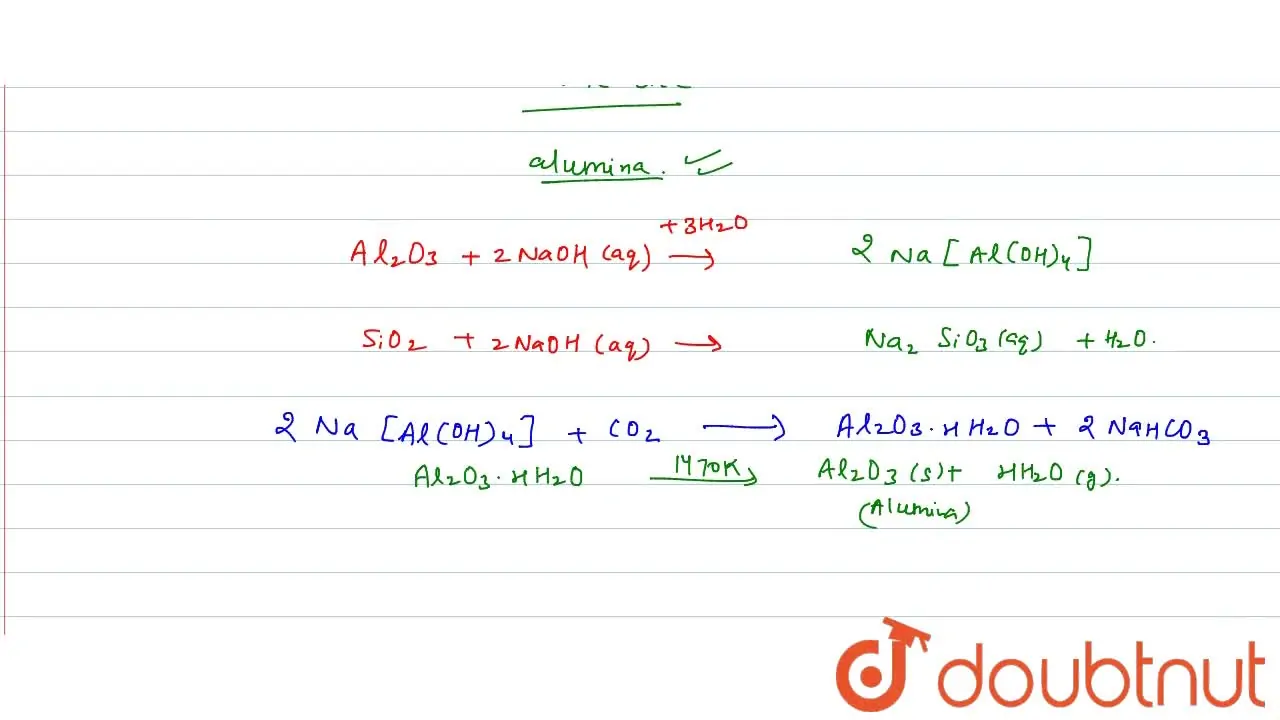 alumina.
+3H2O
Al2O3 + 2NaOH (aq) → 2 Na [Al(OH)4]
SiO2 + 2NaOH (aq) → Na2 SiO3 (aq) + H2O.
2 Na [Al(OH)4] + CO2 → Al2O3.xH2O + 2 NaHCO3
Al2O3.xH2O 1470K → Al2O3 (s) + xH2O (g).
(Alumina)
doubtnut